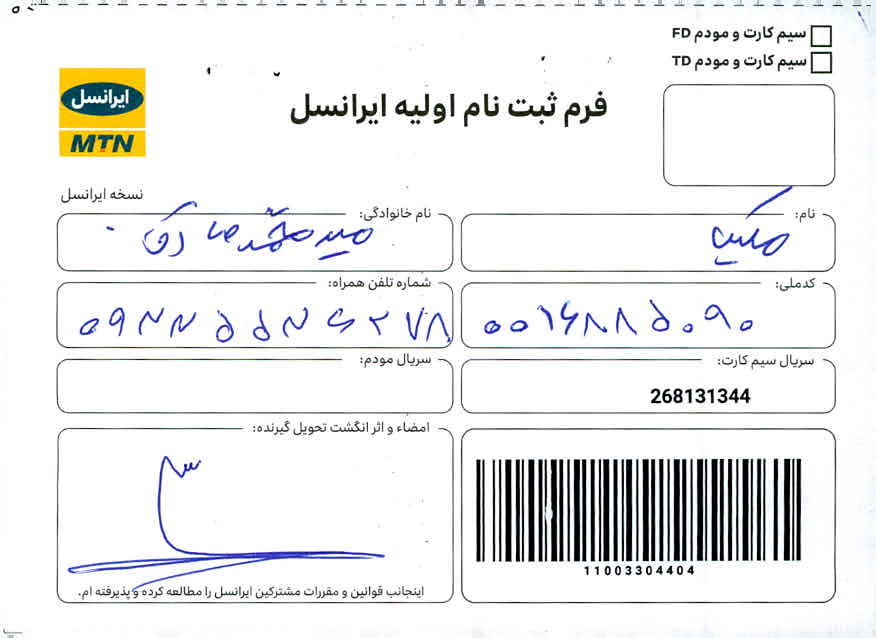 سیم کارت و مودم FD
سیم کارت و مودم TD
ایرانسل
MTN
فرم ثبت نام اولیه ایرانسل
نسخه ایرانسل
نام:
نام خانوادگی: میرمحمدصادقی
کدملی:
شماره تلفن همراه:
سریال سیم کارت: 268131344
سریال مودم:
امضاء و اثر انگشت تحویل گیرنده:
11003304404
اینجانب قوانین و مقررات مشترکین ایرانسل را مطالعه کرده و پذیرفته ام.